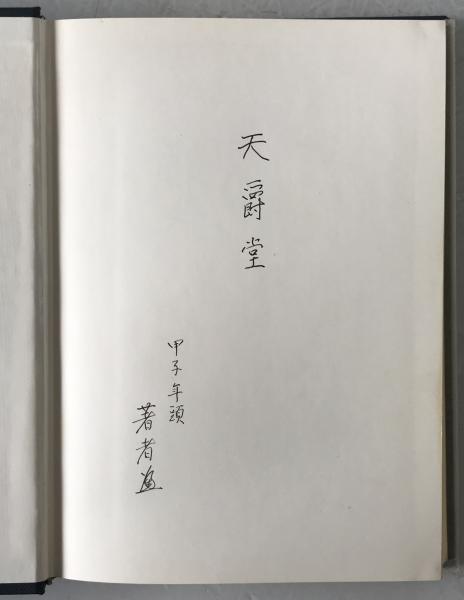 天爵堂
甲子年頭
著者